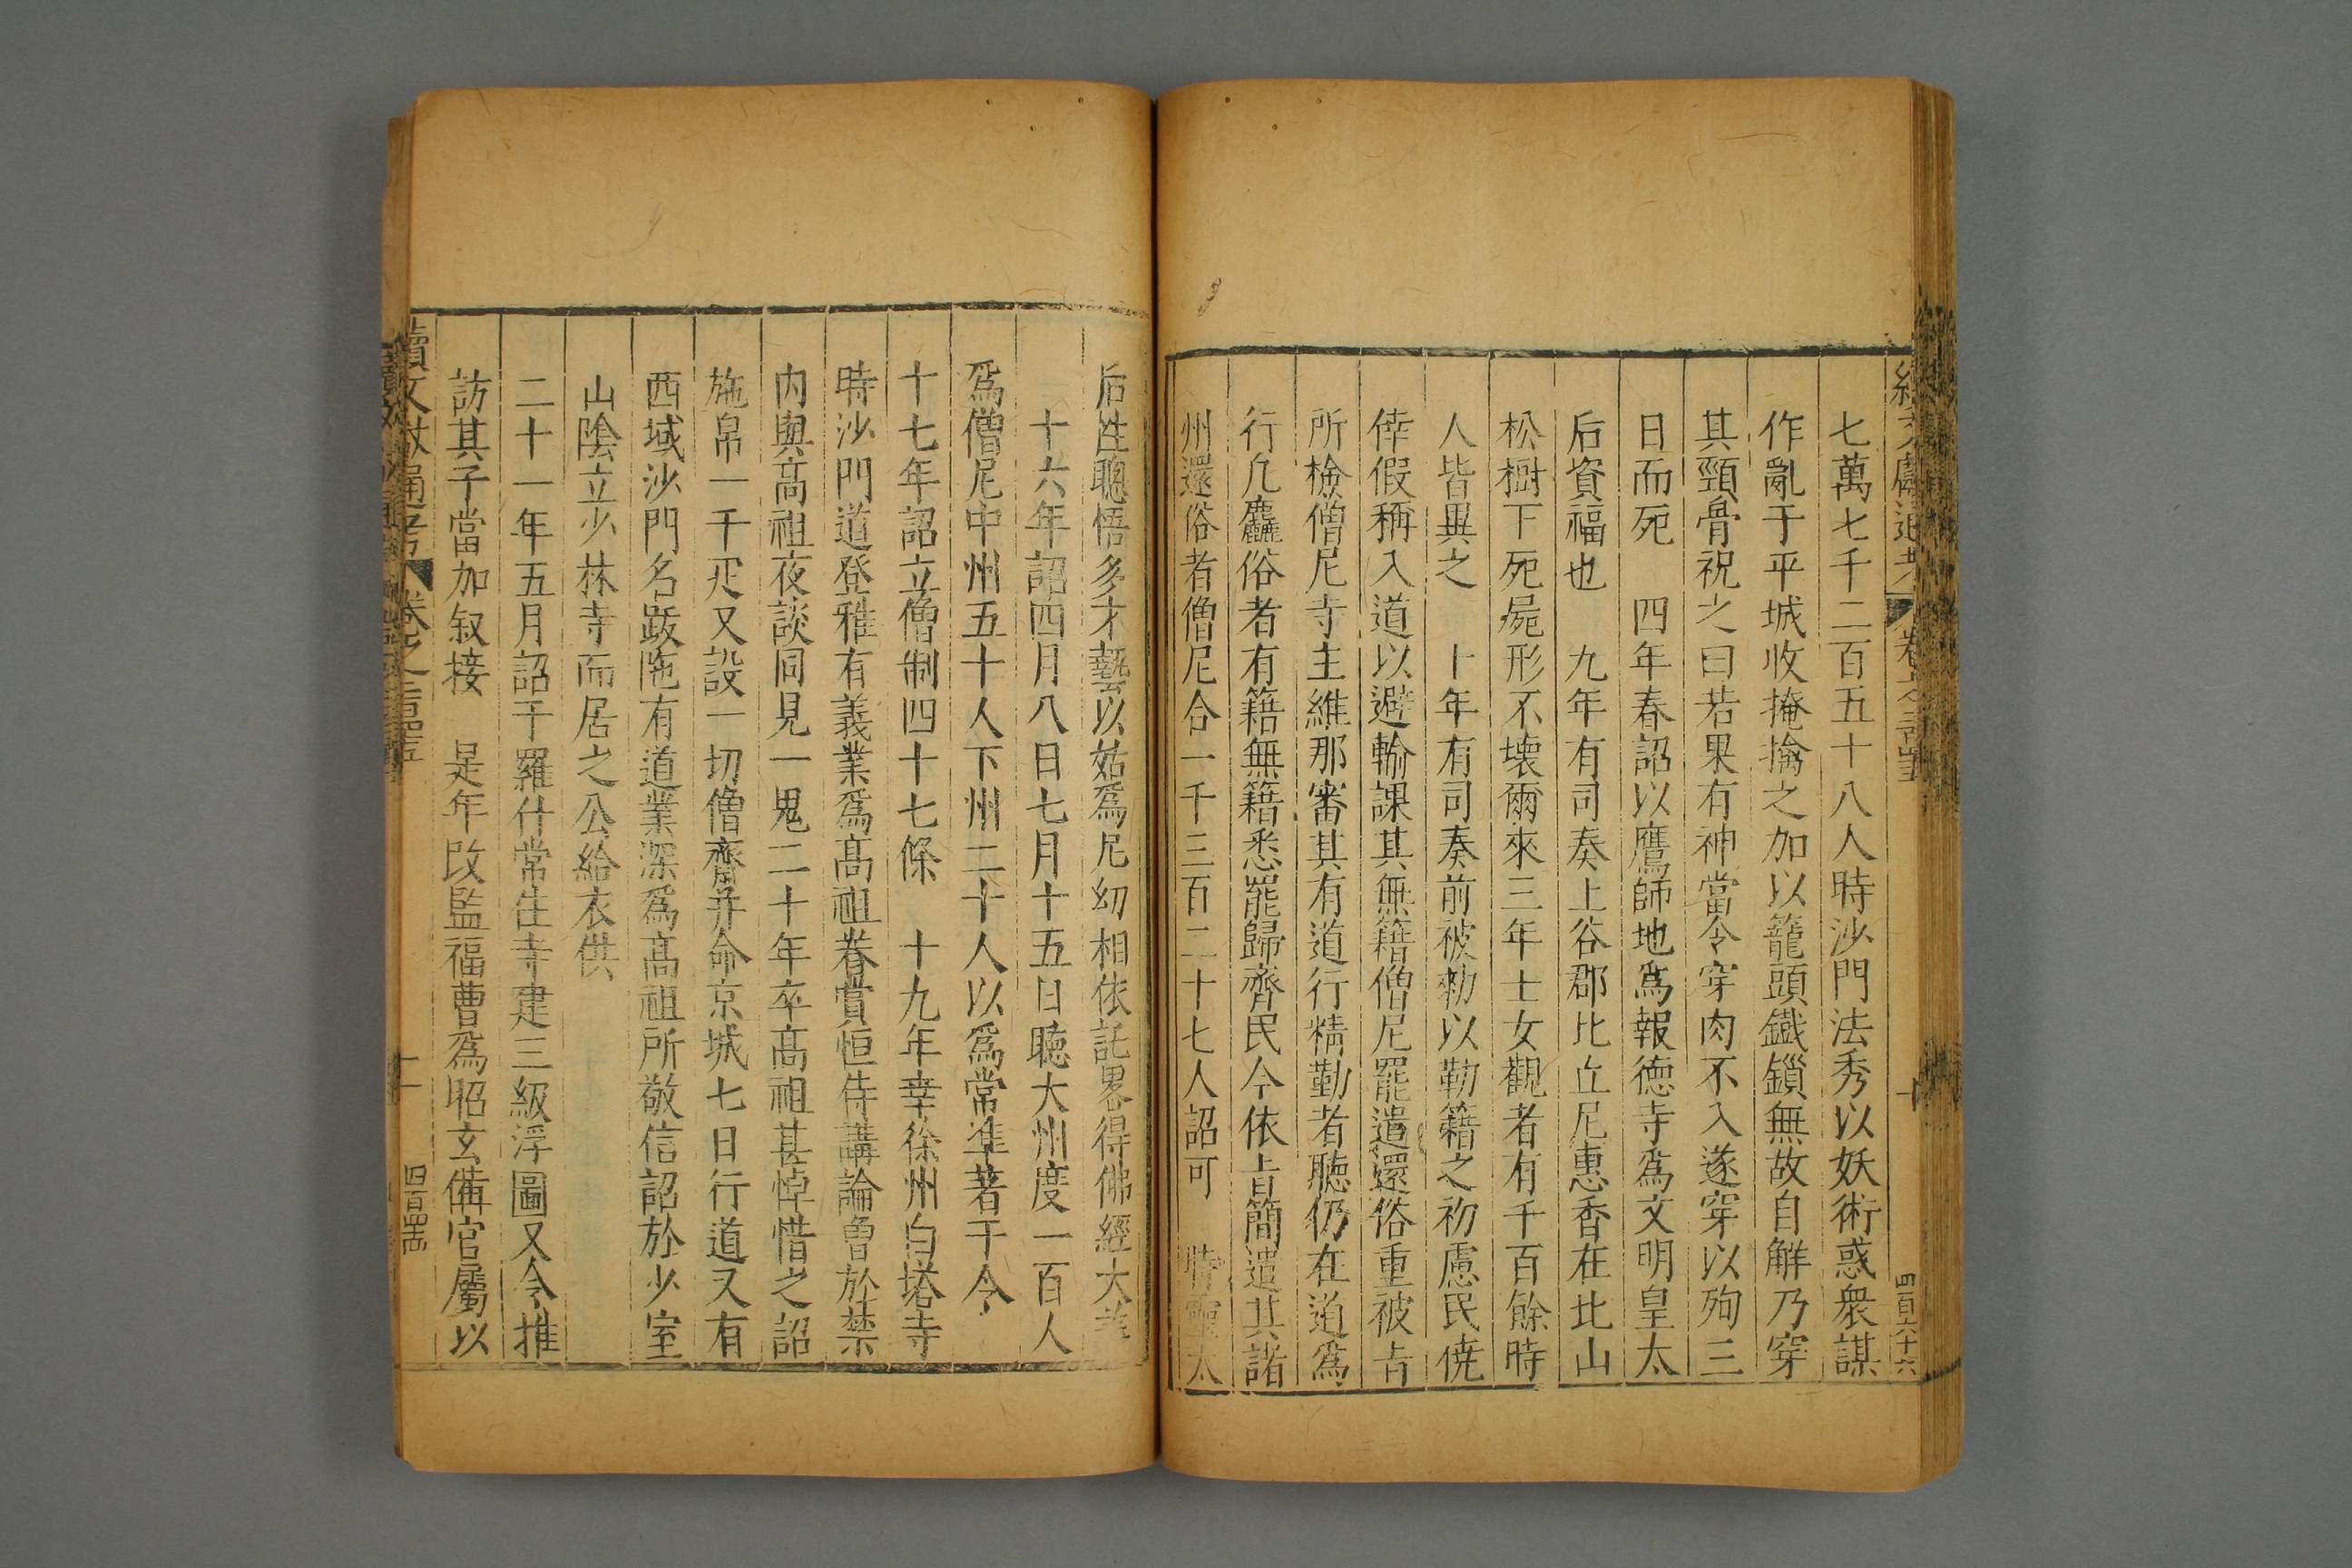 七萬七千二百五十八人時沙門法秀以妖術惑衆謀
作亂于平城收掩擒之加以籠頭鐵鎖無故自解乃穿
其頸骨祝之曰若果有神當令穿肉不入遂穿以殉三
日而死　四年春詔以鷹師地爲報德寺爲文明皇太
后資福也　九年有司奏上谷郡比丘尼惠香在北山
松樹下死屍形不壞爾來三年士女觀者有千百餘時
人皆異之　十年有司奏前被勑以勒籍之初愚民僥
倖假稱入道以避輸課其無籍僧尼罷遣還俗重被旨
所檢僧尼寺主維那審其有道行精勤者聽仍在道爲
行凡麤俗者有籍無籍悉罷歸齊民今依旨簡遣其諸
州還俗者僧尼合一千三百二十七人詔可　時靈太
后性聰悟多才藝以姑爲尼幼相依託畧得佛經大義
十六年詔四月八日七月十五日聽大州度一百人
爲僧尼中州五十人下州二十人以爲常準著于令
十七年詔立僧制四十七條　十九年幸徐州白塔寺
時沙門道登雅有義業爲髙祖眷賞恒侍講論魯於禁
内與髙祖夜談同見一鬼二十年卒髙祖甚悼惜之詔
施帛一千疋又設一切僧齋并命京城七日行道又有
西域沙門名跋陁有道業深爲髙祖所敬信詔於少室
山陰立少林寺而居之公給衣供
二十一年五月詔于羅什常住寺建三級浮圖又令推
訪其子當加叙接　是年改監福曹爲昭玄備官屬以
續文獻通考